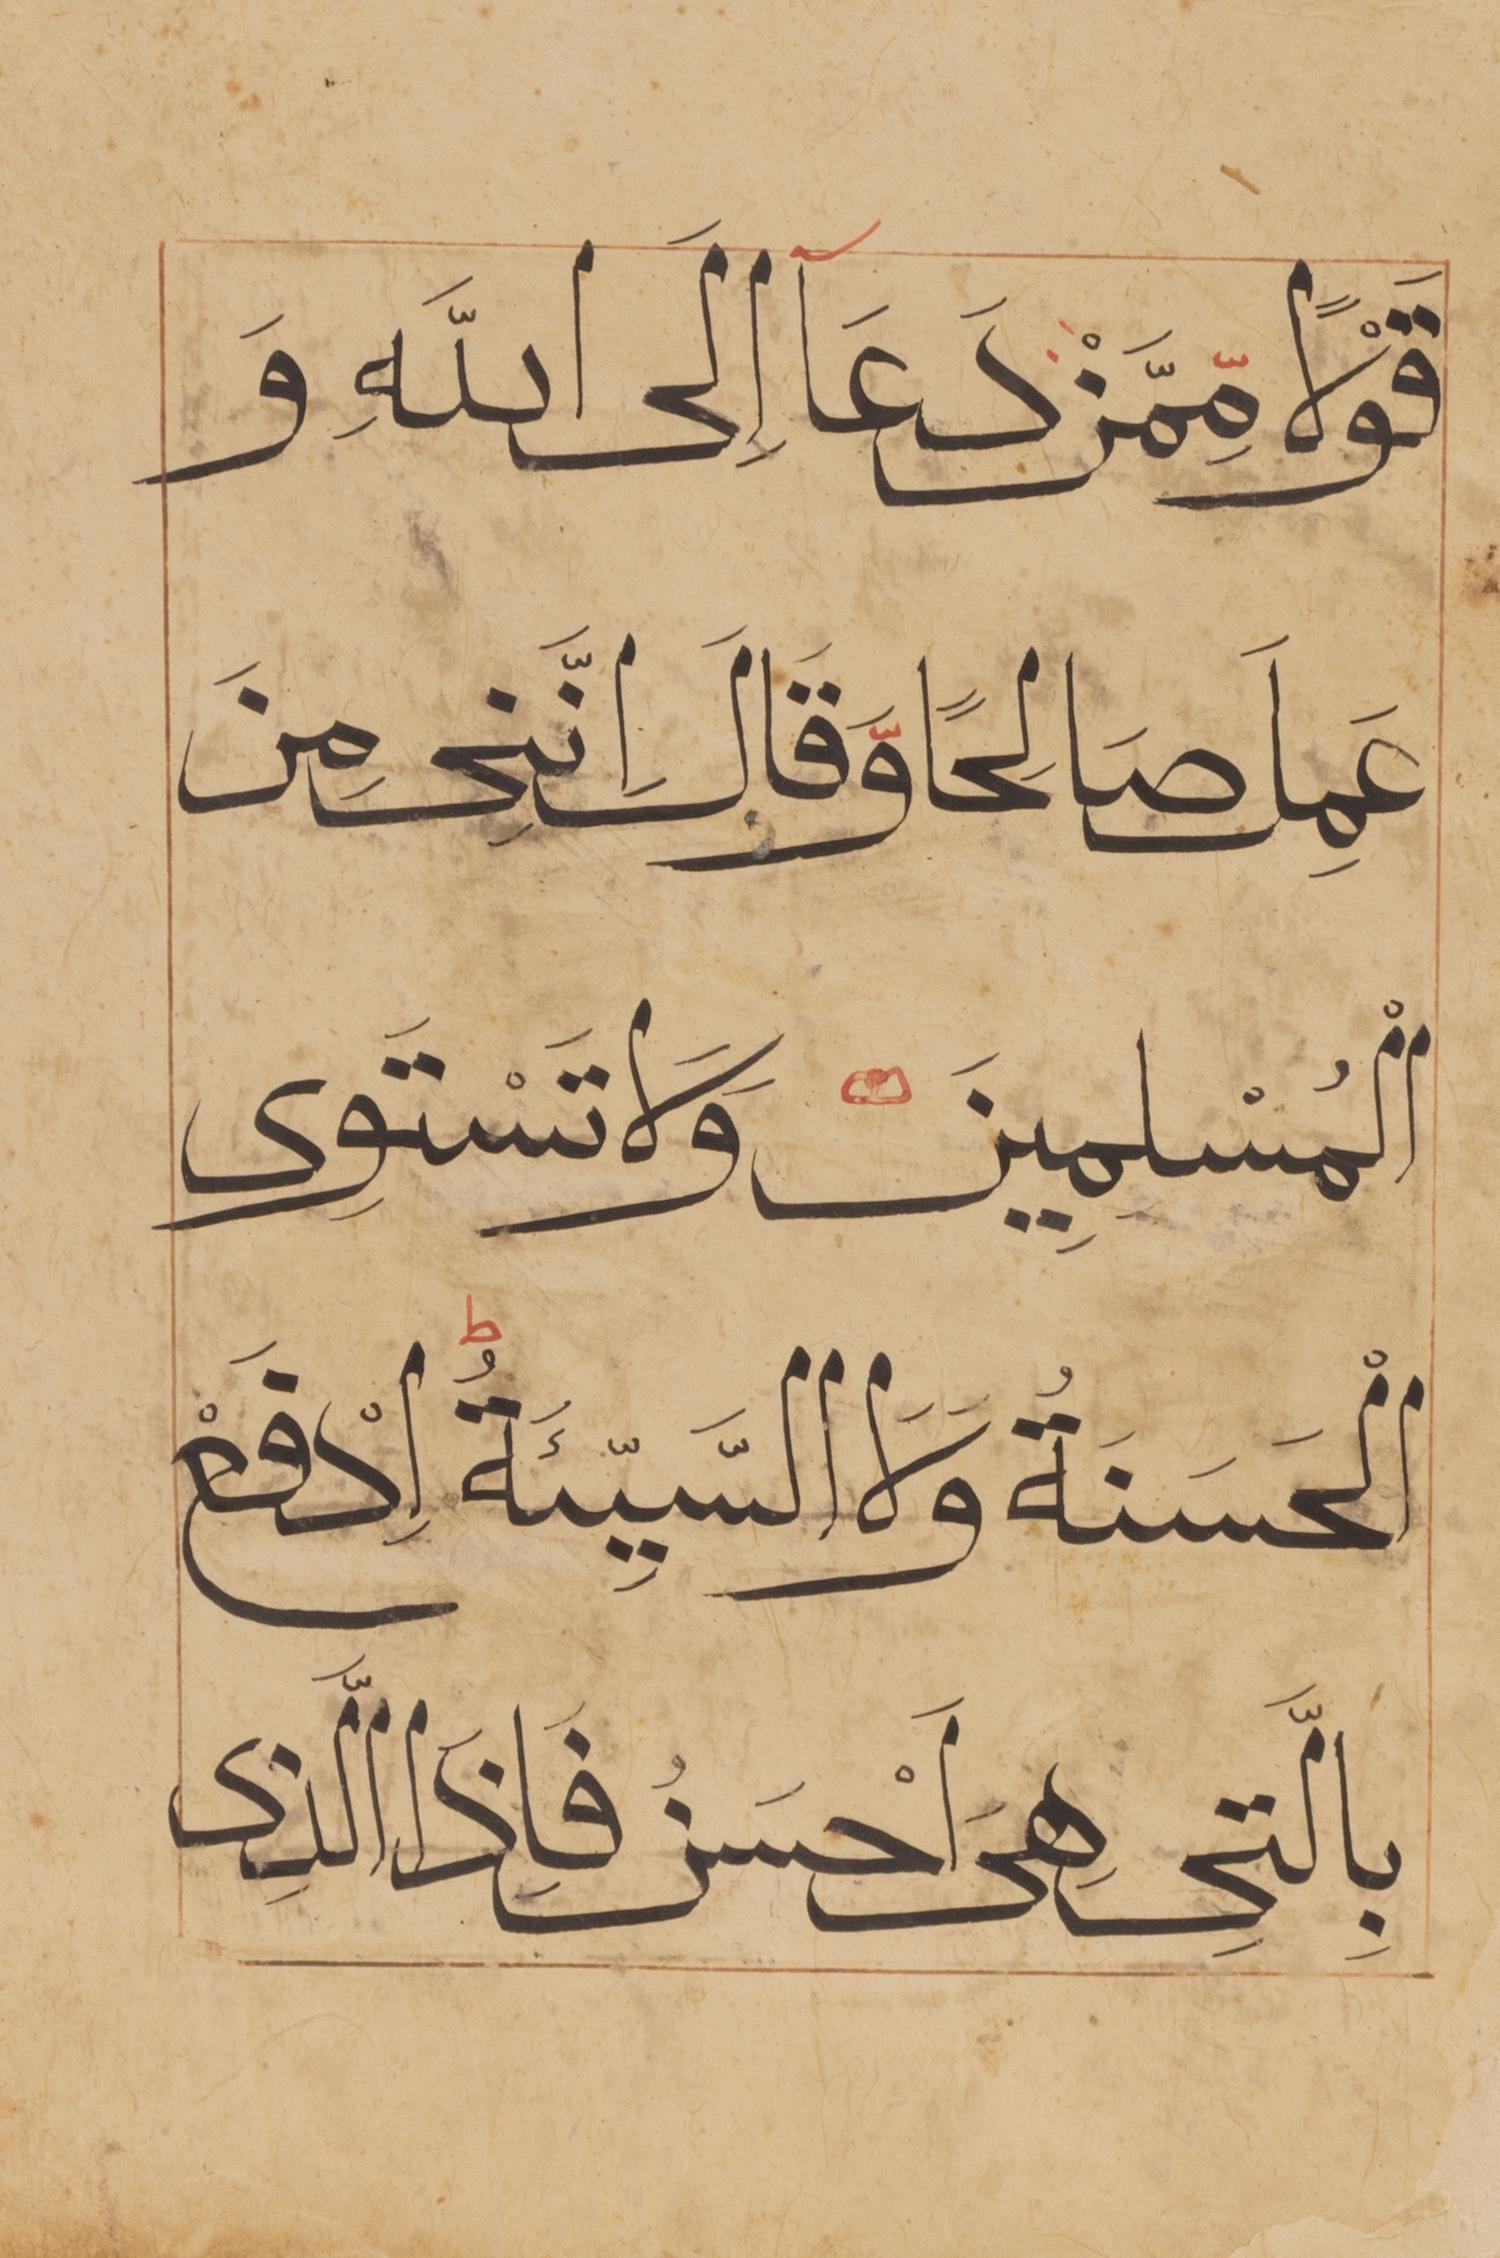 قَوْلًا مِّمَّنْ دَعَآ اِلَى اللّٰهِ وَ
عَمِلَ صَالِحًا وَّقَالَ اِنَّنِى مِنَ
الْمُسْلِمِينَ وَلَا تَسْتَوِى
الْحَسَنَةُ وَلَا السَّيِّئَةُ ط اِدْفَعْ
بِالَّتِى هِىَ اَحْسَنُ فَاِذَا الَّذِى